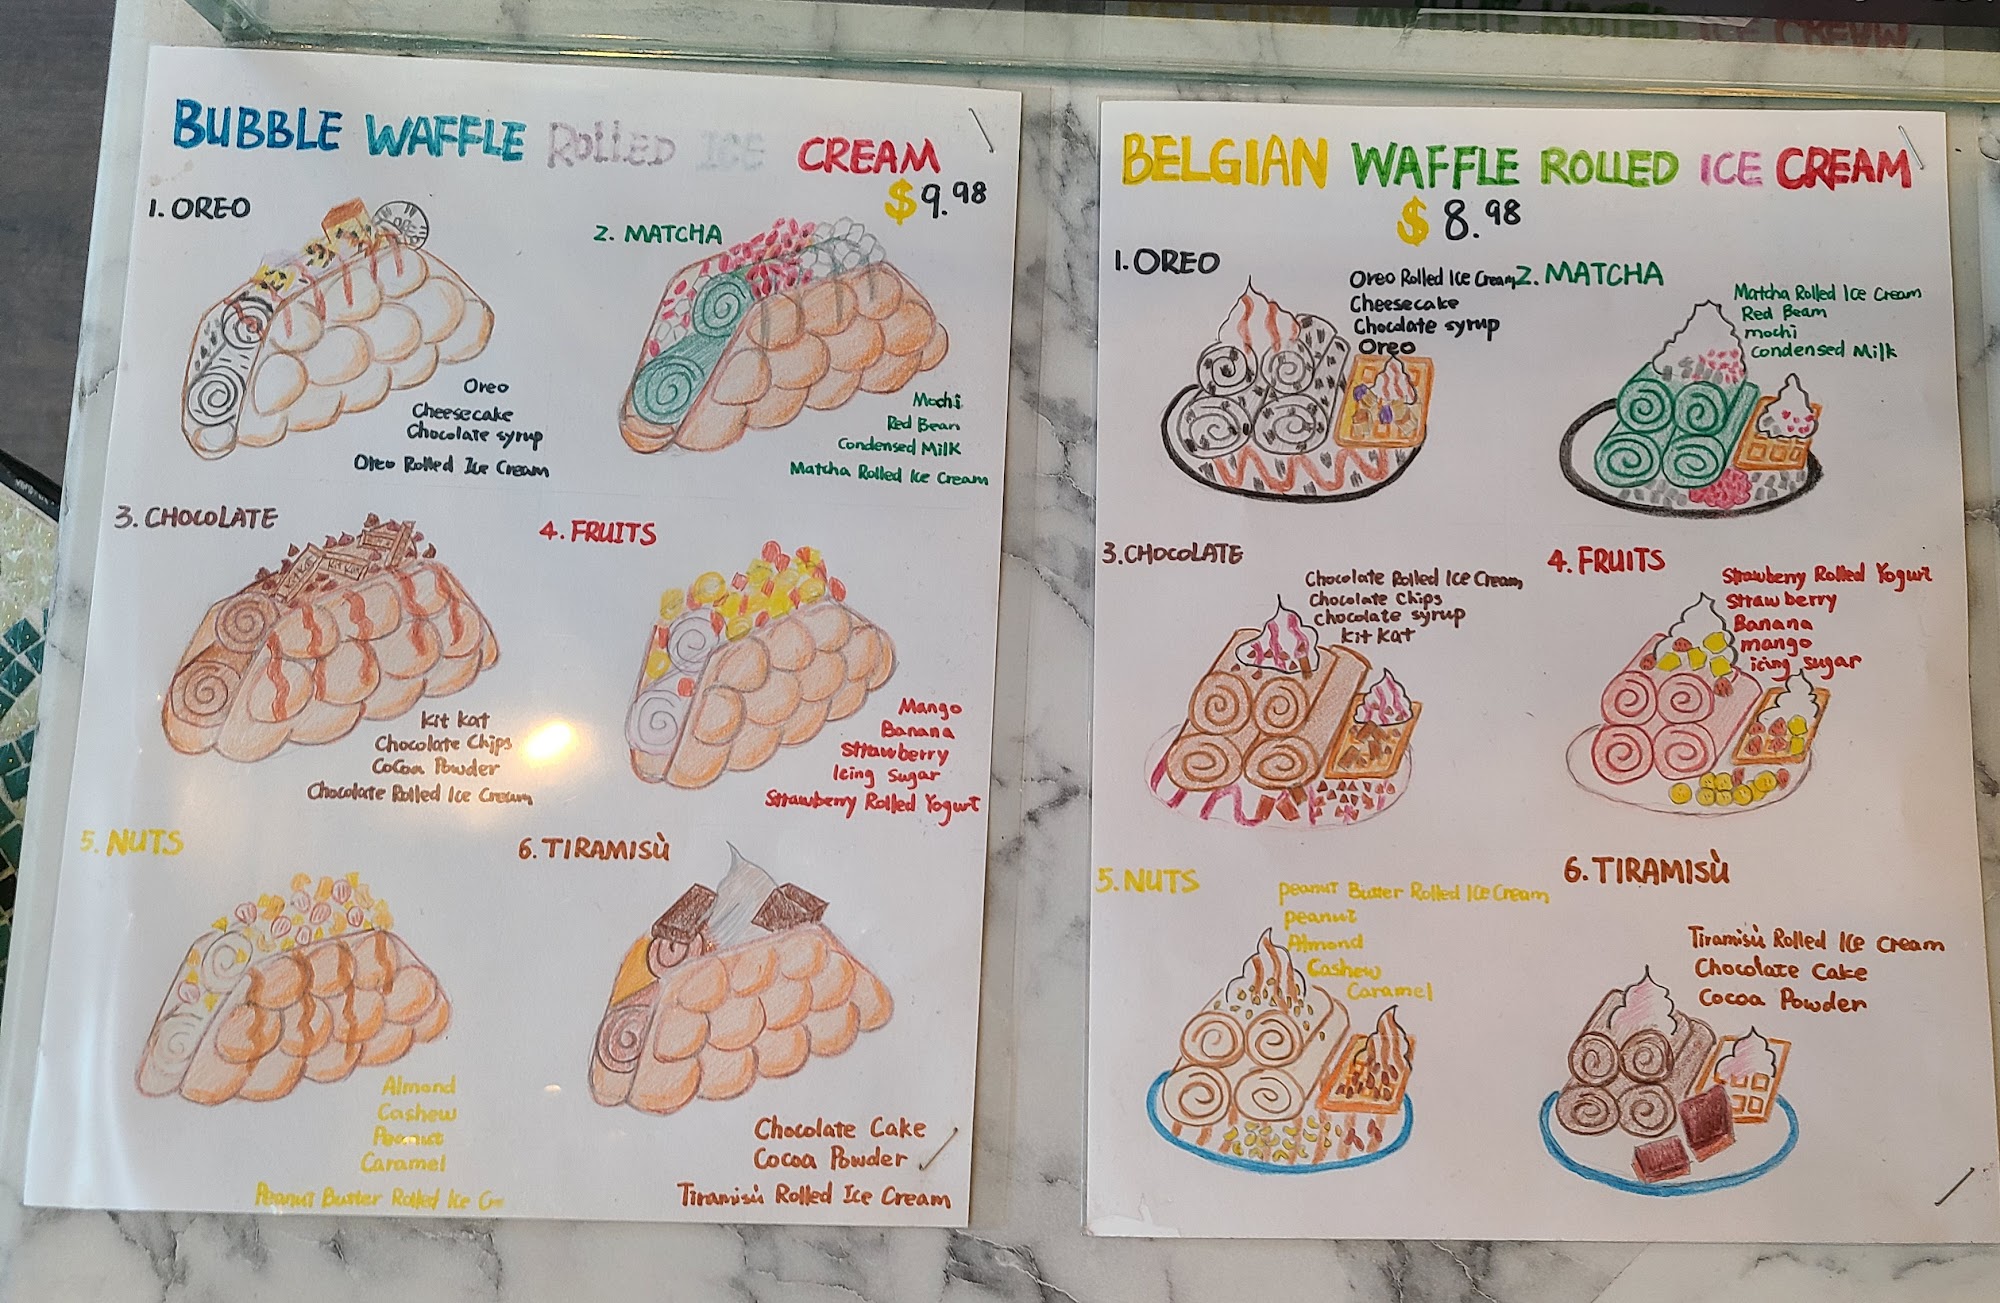 BUBBLE WAFFLE ROLLED ICE CREAM
$9.98
1. OREO
Oreo
Cheesecake
Chocolate syrup
Oreo Rolled Ice Cream
2. MATCHA
Mochi
Red Bean
Condensed Milk
Matcha Rolled Ice Cream
3. CHOCOLATE
Kit Kat
Kit Kat
Kit Kat
Chocolate Chips
Cocoa Powder
Chocolate Rolled Ice Cream
4. FRUITS
Mango
Banana
Strawberry
Icing Sugar
Strawberry Rolled Yogurt
5. NUTS
Almond
Cashew
Peanut
Caramel
Peanut Butter Rolled Ice C
6. TIRAMISÙ
Chocolate Cake
Cocoa Powder
Tiramisù Rolled Ice Cream
BELGIAN WAFFLE ROLLED ICE CREAM
$8.98
1. OREO
Oreo Rolled Ice Cream
Cheesecake
Chocolate syrup
Oreo
2. MATCHA
Matcha Rolled Ice Cream
Red Beam
mochi
Condensed Milk
3. CHOCOLATE
Chocolate Rolled Ice Cream
Chocolate Chips
chocolate syrup
kit kat
4. FRUITS
Strawberry Rolled Yogurt
Strawberry
Banana
mango
icing sugar
5. NUTS
peanut Butter Rolled Ice Cream
peanut
Almond
Cashew
Caramel
6. TIRAMISÙ
Tiramisù Rolled Ice Cream
Chocolate Cake
Cocoa Powder